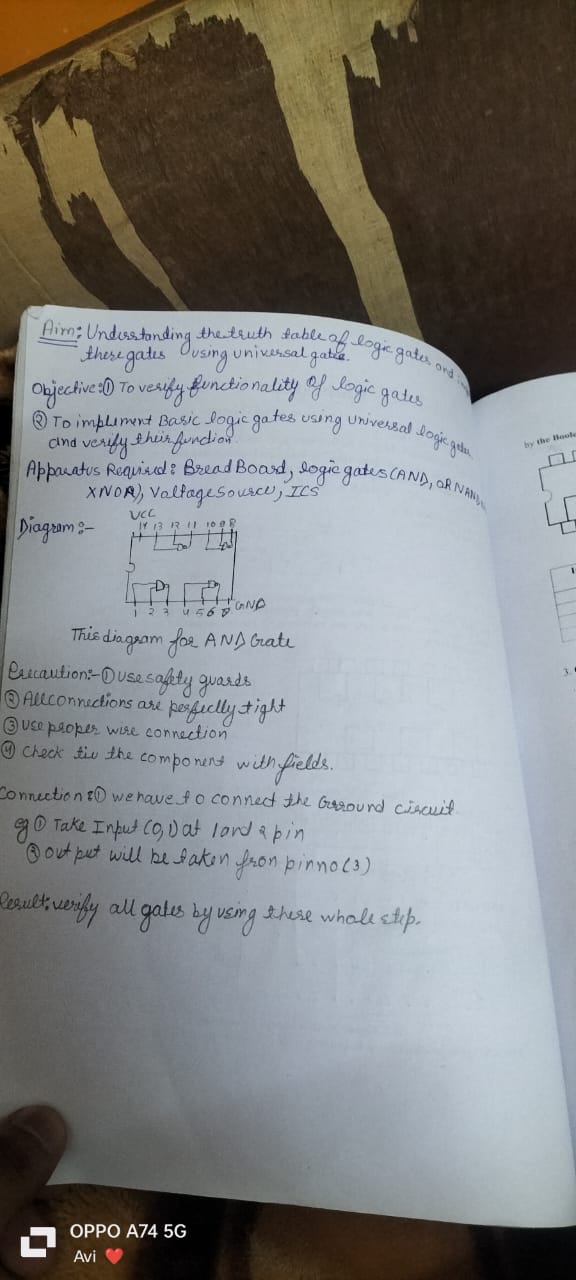 Aim: Understanding the truth table of logic gates and
these gates using universal gate.
Objective:① To verify functionality of logic gates
② To implement Basic logic gates using universal logic gates
and verify their function.
Apparatus Required: Bread Board, logic gates (AND, OR NAND
XNOR), Voltage Source, ICS
VCC
Diagram:-
14 13 12 11 10 9 8
1 2 3 4 5 6 7 GND
This diagram for AND Gate
Precaution:-① Use safety guards
② All connections are perfectly tight
③ Use proper wire connection
④ Check the component with fields.
Connection:① we have to connect the Ground circuit.
eg ① Take Input (0,1) at 1 and 2 pin
② out put will be taken from pin no (3)
Result: verify all gates by using these whole step.
by the Boole
3.
OPPO A74 5G
Avi ❤️